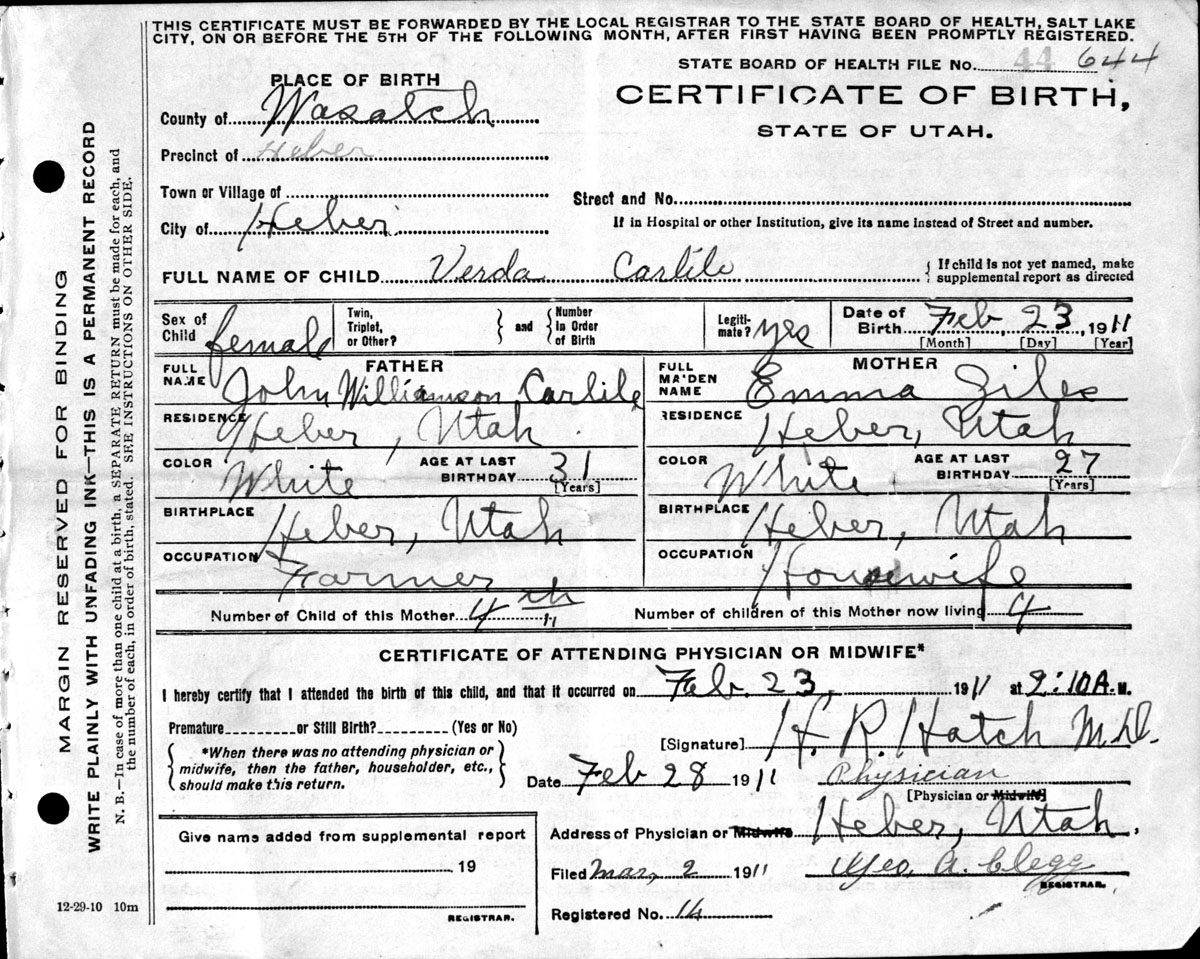 THIS CERTIFICATE MUST BE FORWARDED BY THE LOCAL REGISTRAR TO THE STATE BOARD OF HEALTH, SALT LAKE
CITY, ON OR BEFORE THE 5TH OF THE FOLLOWING MONTH, AFTER FIRST HAVING BEEN PROMPTLY REGISTERED.
STATE BOARD OF HEALTH FILE No. 44 644
PLACE OF BIRTH
CERTIFICATE OF BIRTH,
STATE OF UTAH.
County of Wasatch
Precinct of Heber
Town or Village of
Street and No.
City of Heber
If in Hospital or other Institution, give its name instead of Street and number.
FULL NAME OF CHILD Verda Carlile { If child is not yet named, make
supplemental report as directed
Sex of Child female Twin, Triplet, or Other? } and { Number In Order of Birth Legiti-mate? yes Date of Birth Feb, 23 1911
[Month] [Day] [Year]
FATHER
FULL NAME John Williamson Carlile
RESIDENCE Heber, Utah
COLOR White AGE AT LAST BIRTHDAY 31 [Years]
BIRTHPLACE Heber, Utah
OCCUPATION Farmer
MOTHER
FULL MAIDEN NAME Emma Giles
RESIDENCE Heber, Utah
COLOR White AGE AT LAST BIRTHDAY 27 [Years]
BIRTHPLACE Heber, Utah
OCCUPATION Housewife
Number of Child of this Mother 4th Number of children of this Mother now living 4
CERTIFICATE OF ATTENDING PHYSICIAN OR MIDWIFE*
I hereby certify that I attended the birth of this child, and that it occurred on Feb. 23, 1911 at 2:10 A. M.
Premature or Still Birth? (Yes or No)
{ *When there was no attending physician or
midwife, then the father, householder, etc.,
should make this return. }
[Signature] H. R. Hatch M.D.
Date Feb 28 1911 Physician
[Physician or Midwife]
Address of Physician or Midwife Heber, Utah.
Give name added from supplemental report
, 19
REGISTRAR.
Filed Mar, 2 1911 Geo. A. Clegg
REGISTRAR.
Registered No. 14
12-29-10 10m
MARGIN RESERVED FOR BINDING
WRITE PLAINLY WITH UNFADING INK—THIS IS A PERMANENT RECORD
N. B.—In case of more than one child at a birth, a SEPARATE RETURN must be made for each, and
the number of each, in order of birth, stated. SEE INSTRUCTIONS ON OTHER SIDE.